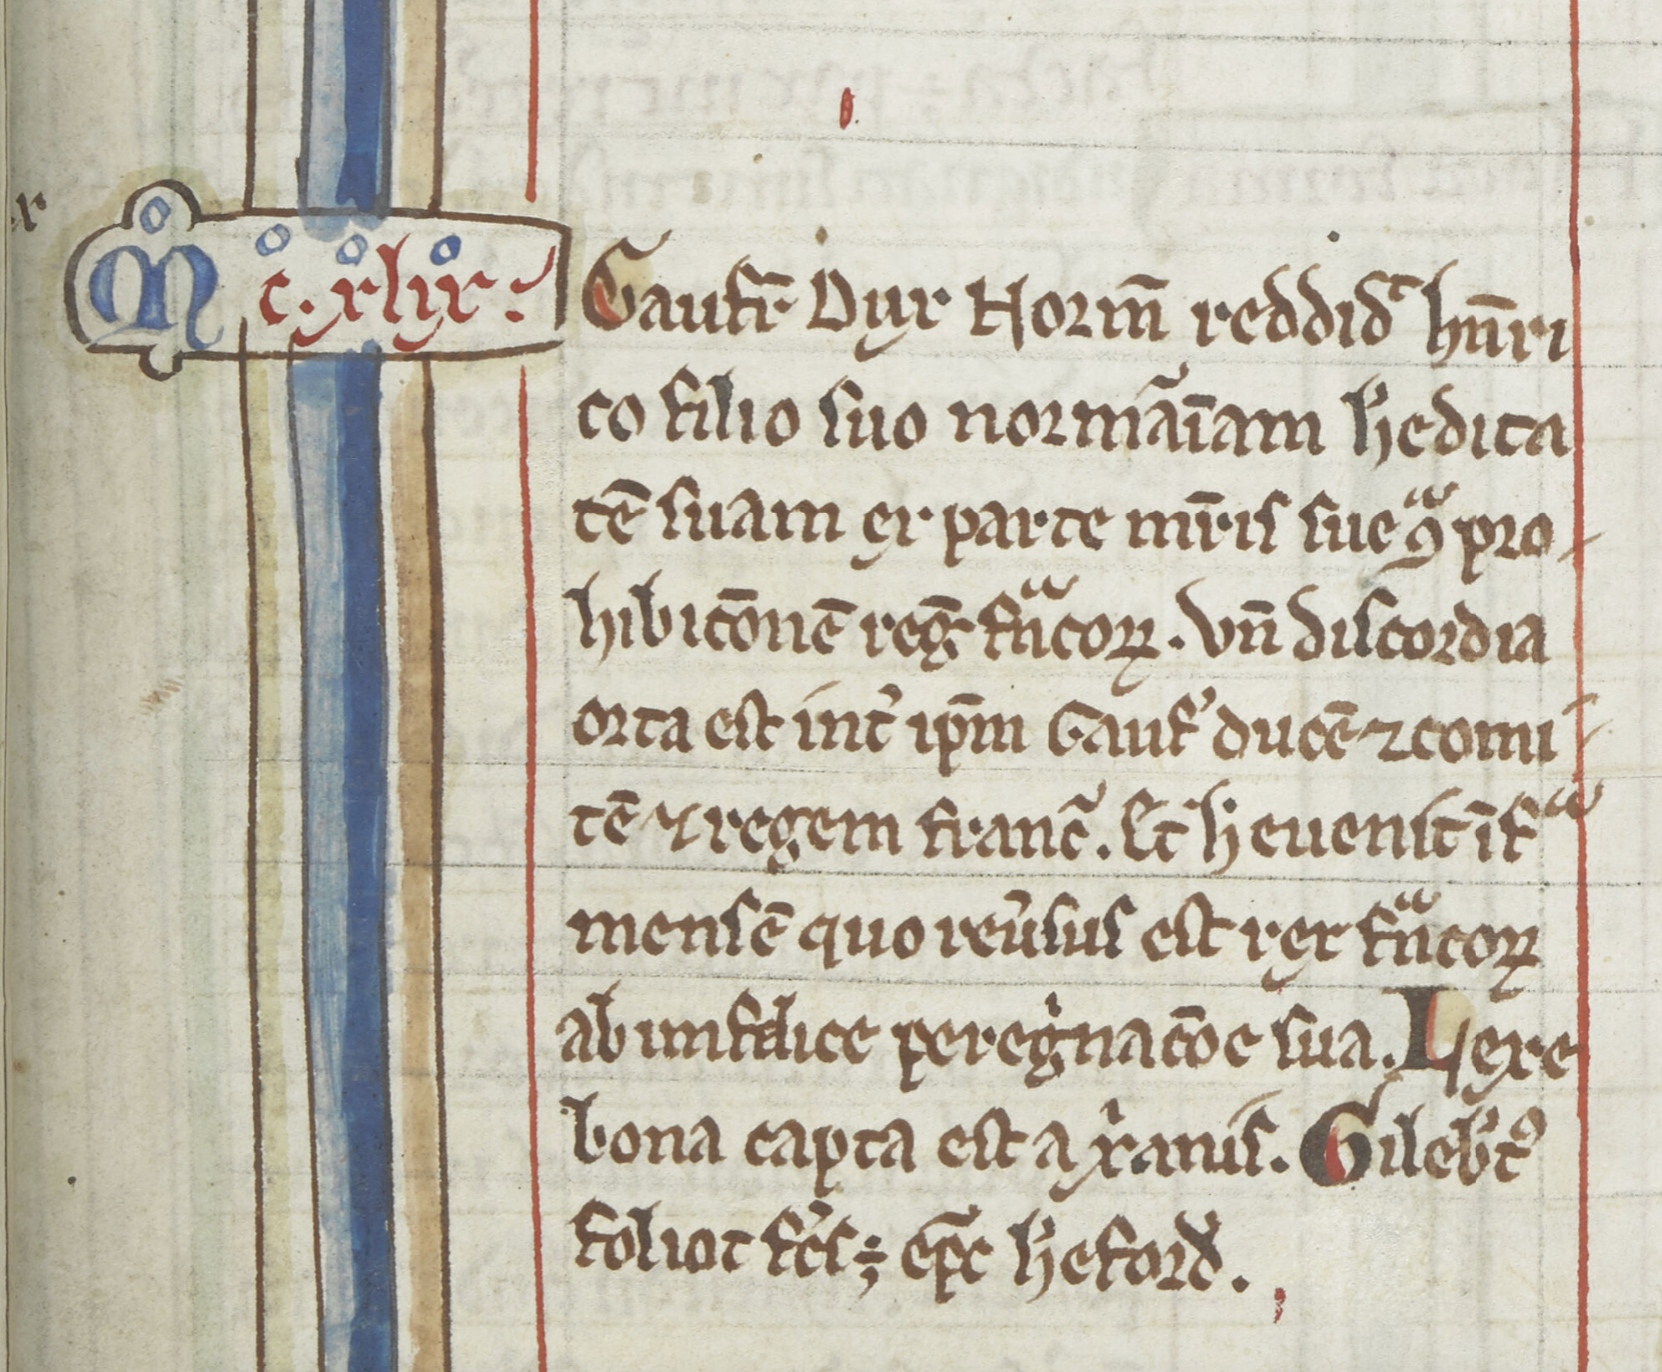 M c.xlix.
Gaufr Dux Norm̄ reddid' hn̄ri
co filio suo normāīam h'edita
tē suam ex parte mr̄is sue ꝯᵃ pro
hibitōnē reḡ fnᵃcoꝝ. vn̄ discordia
orta est int' ip̄m Gauf' ducē ⁊ comi
tē ⁊ regem franc̄. Et h̵ euenit īfᵃ
mensē quo reu'sus est rex fnᵃcoꝝ
ab infelice peregⁱnac̄oe sua. Lexe
bona capta est a xⁱanis. Gileb'tꝰ
foliot fc̄s ÷ ep̄c h'eford.